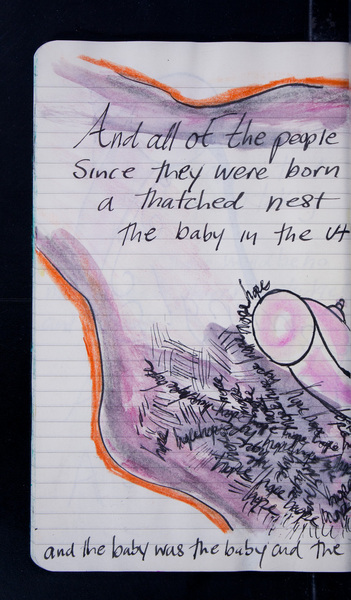 And all of the people
Since they were born
a thatched nest
The baby in the ut
hope hope
hope hope hope hope
hope hope hope
and the baby was the baby and the